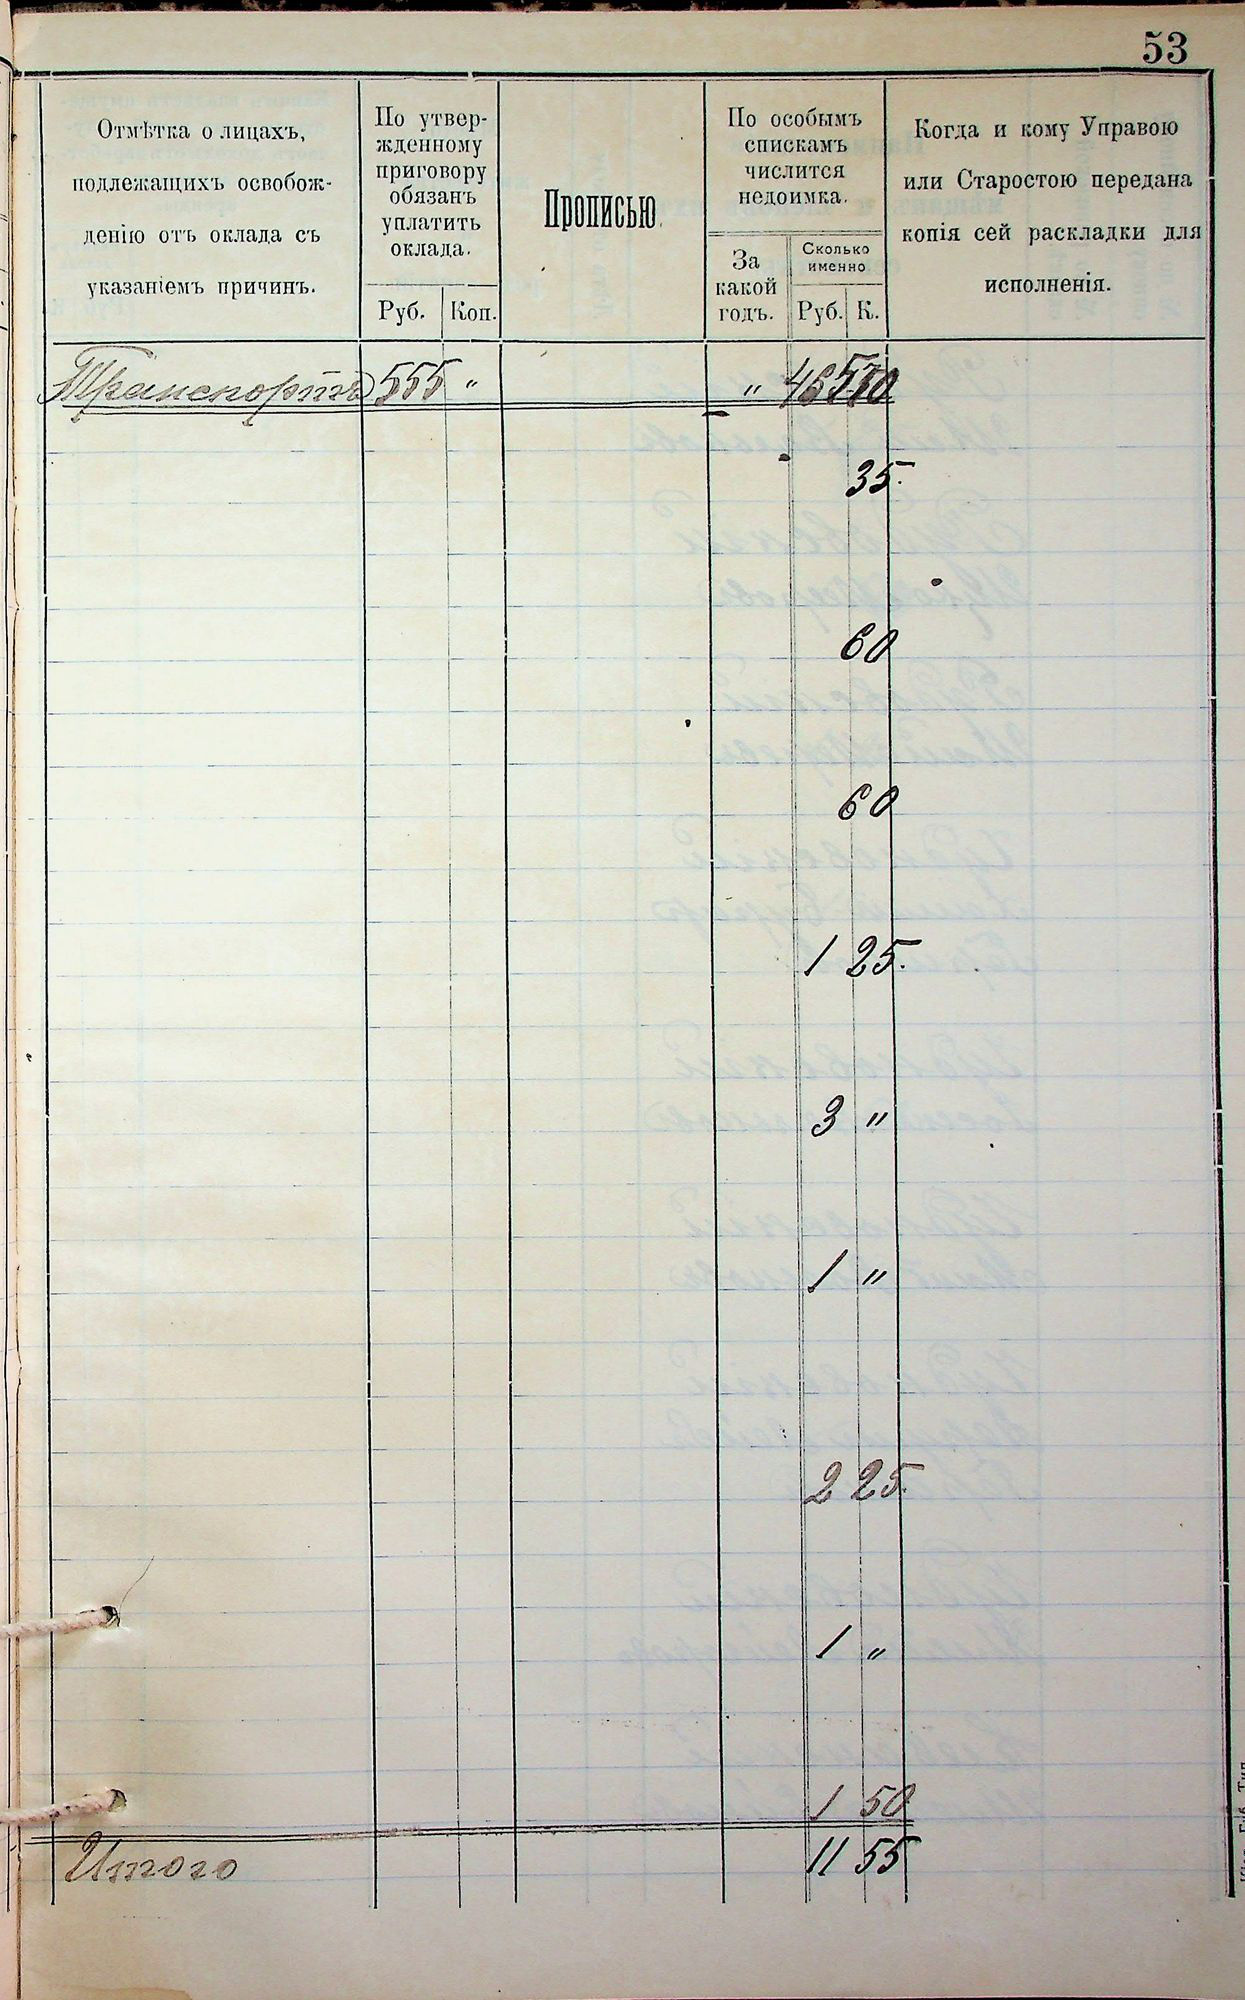 53
Отмѣтка о лицахъ,
подлежащихъ освобож-
денію отъ оклада съ
указаніемъ причинъ.
По утвер-
жденному
приговору
обязанъ
уплатить
оклада.
Руб. Коп.
Прописью.
По особымъ
спискамъ
числится
недоимка.
За
какой
годъ.
Сколько
именно
Руб. К.
Когда и кому Управою
или Старостою передана
копія сей раскладки для
исполненія.
Транспортъ 555 " "
35.
60
60
1 25.
3 "
1 "
2 25.
1 "
1 50
Итого 11 55